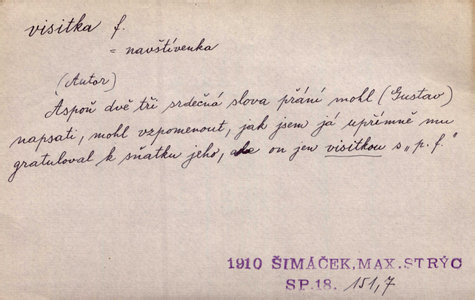 visitka f.
= navštívenka
(Autor)
Aspoň dvě tři srdečná slova přání mohl (Gustav)
napsati, mohl vzpomenout, jak jsem já upřímně mu
gratuloval k sňatku jeho, ale on jen visitkou s „p. f."
1910 ŠIMÁČEK, MAX. STRÝC
SP. 18. 151,7